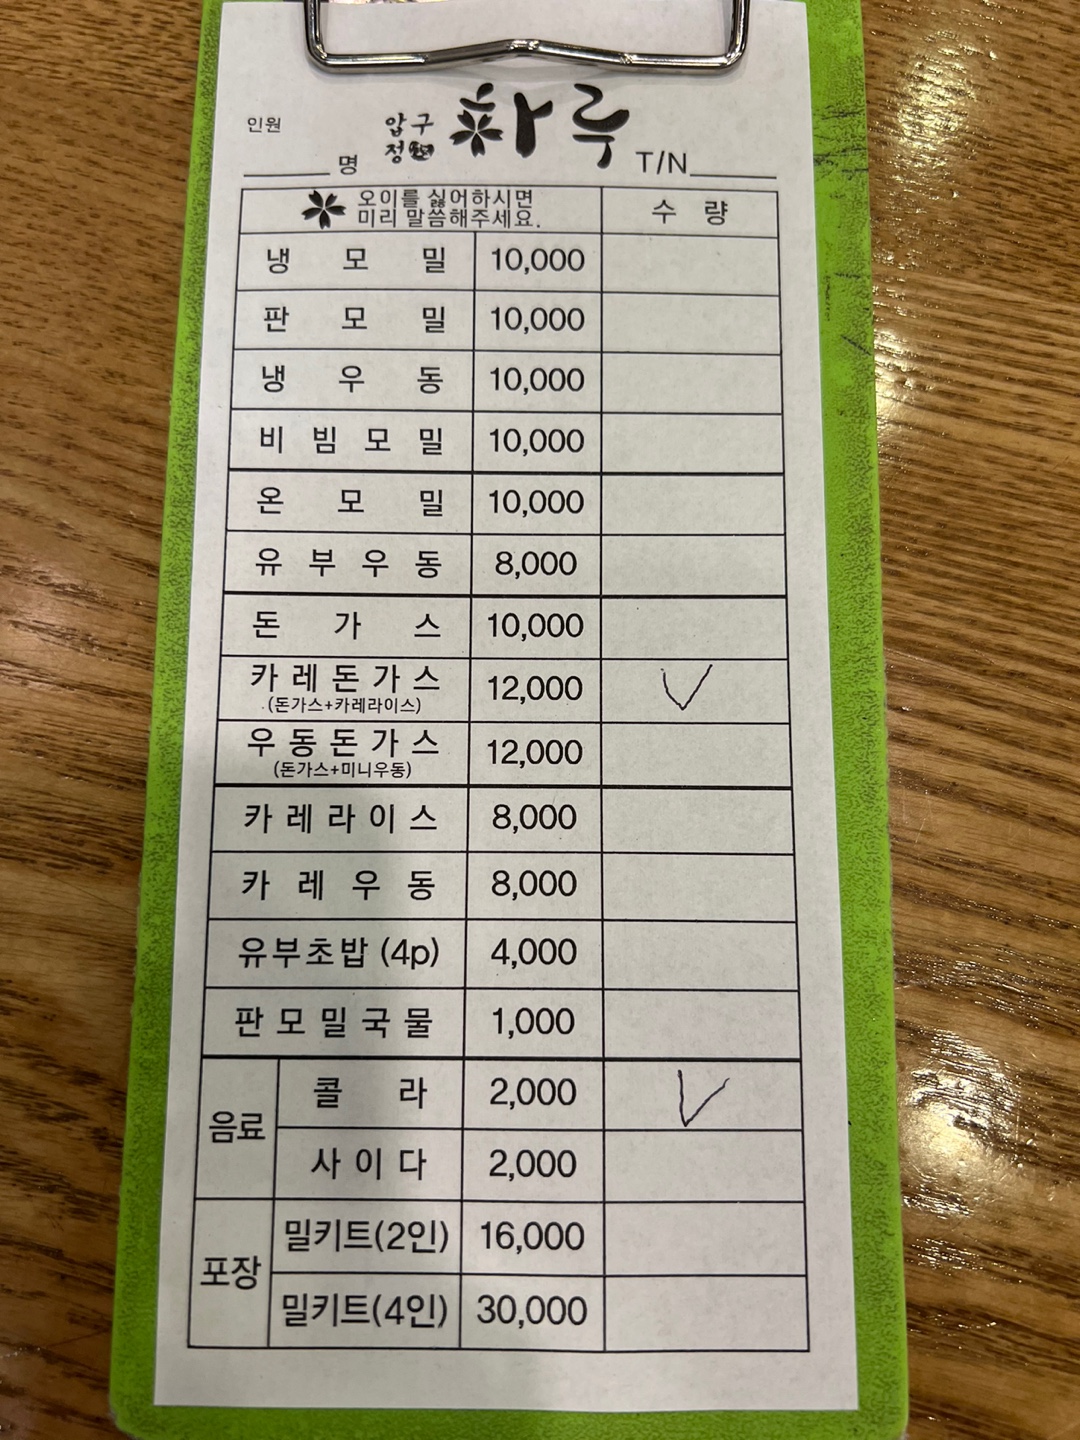 인원
명
압구
정
하루
T/N
오이를 싫어하시면
미리 말씀해주세요.
수 량
냉 모 밀 10,000
판 모 밀 10,000
냉 우 동 10,000
비 빔 모 밀 10,000
온 모 밀 10,000
유 부 우 동 8,000
돈 가 스 10,000
카 레 돈 가 스 12,000
(돈가스+카레라이스)
우 동 돈 가 스 12,000
(돈가스+미니우동)
카 레 라 이 스 8,000
카 레 우 동 8,000
유부초밥 (4p) 4,000
판 모 밀 국 물 1,000
음료
콜 라 2,000
사 이 다 2,000
포장
밀키트(2인) 16,000
밀키트(4인) 30,000